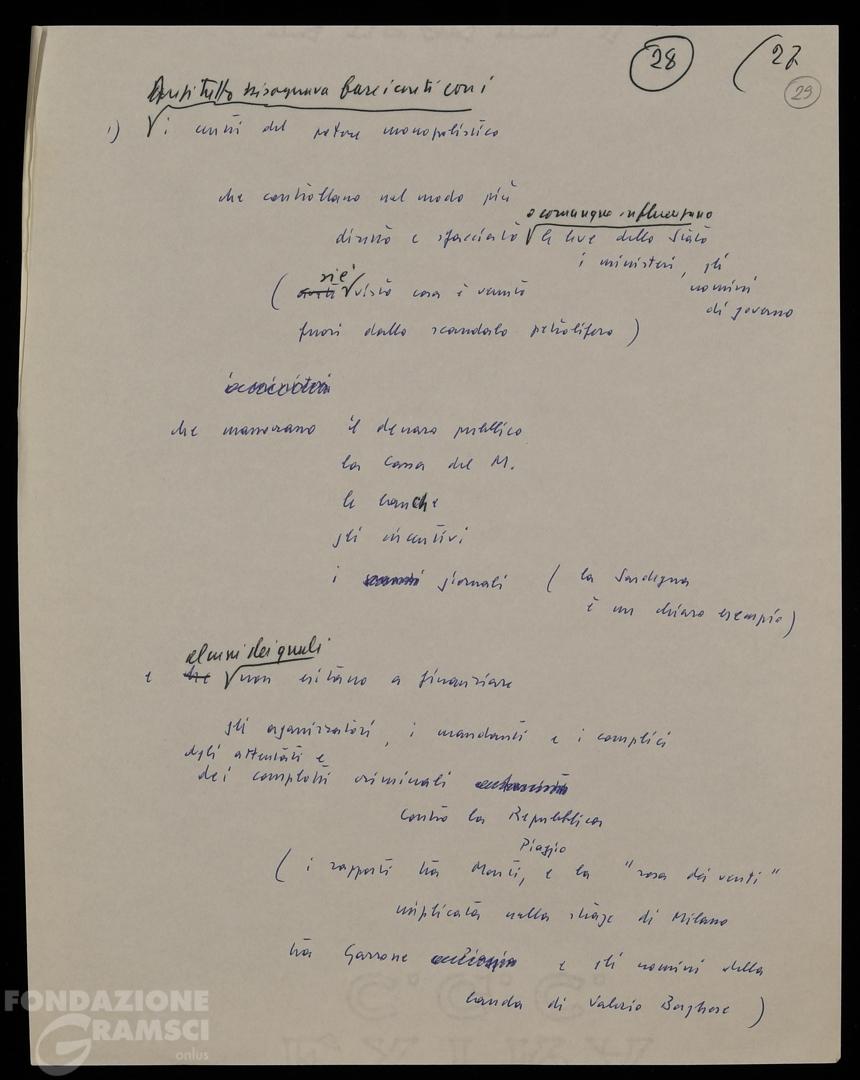 28 ( 27
29
Anzitutto bisognava fare i conti con i
1) i centri del potere monopolistico
che controllano nel modo più
o comunque influenzano
diretto e sfacciato le leve dello Stato
i ministeri, gli
uomini
di governo
si è
( visto cosa è venuto
fuori dallo scandalo petrolifero )
che manovrano il denaro pubblico
la Cassa del M.
le banche
gli incentivi
i giornali ( la Sardegna
è un chiaro esempio )
alcuni dei quali
e non esitano a finanziare
gli organizzatori, i mandanti e i complici
degli attentati e
dei complotti criminali
contro la Repubblica
Piaggio
( i rapporti tra Monti, e la "rosa dei venti"
implicata nella strage di Milano
tra Garrone e gli uomini della
banda di Valerio Borghese )
FONDAZIONE
GRAMSCI
onlus